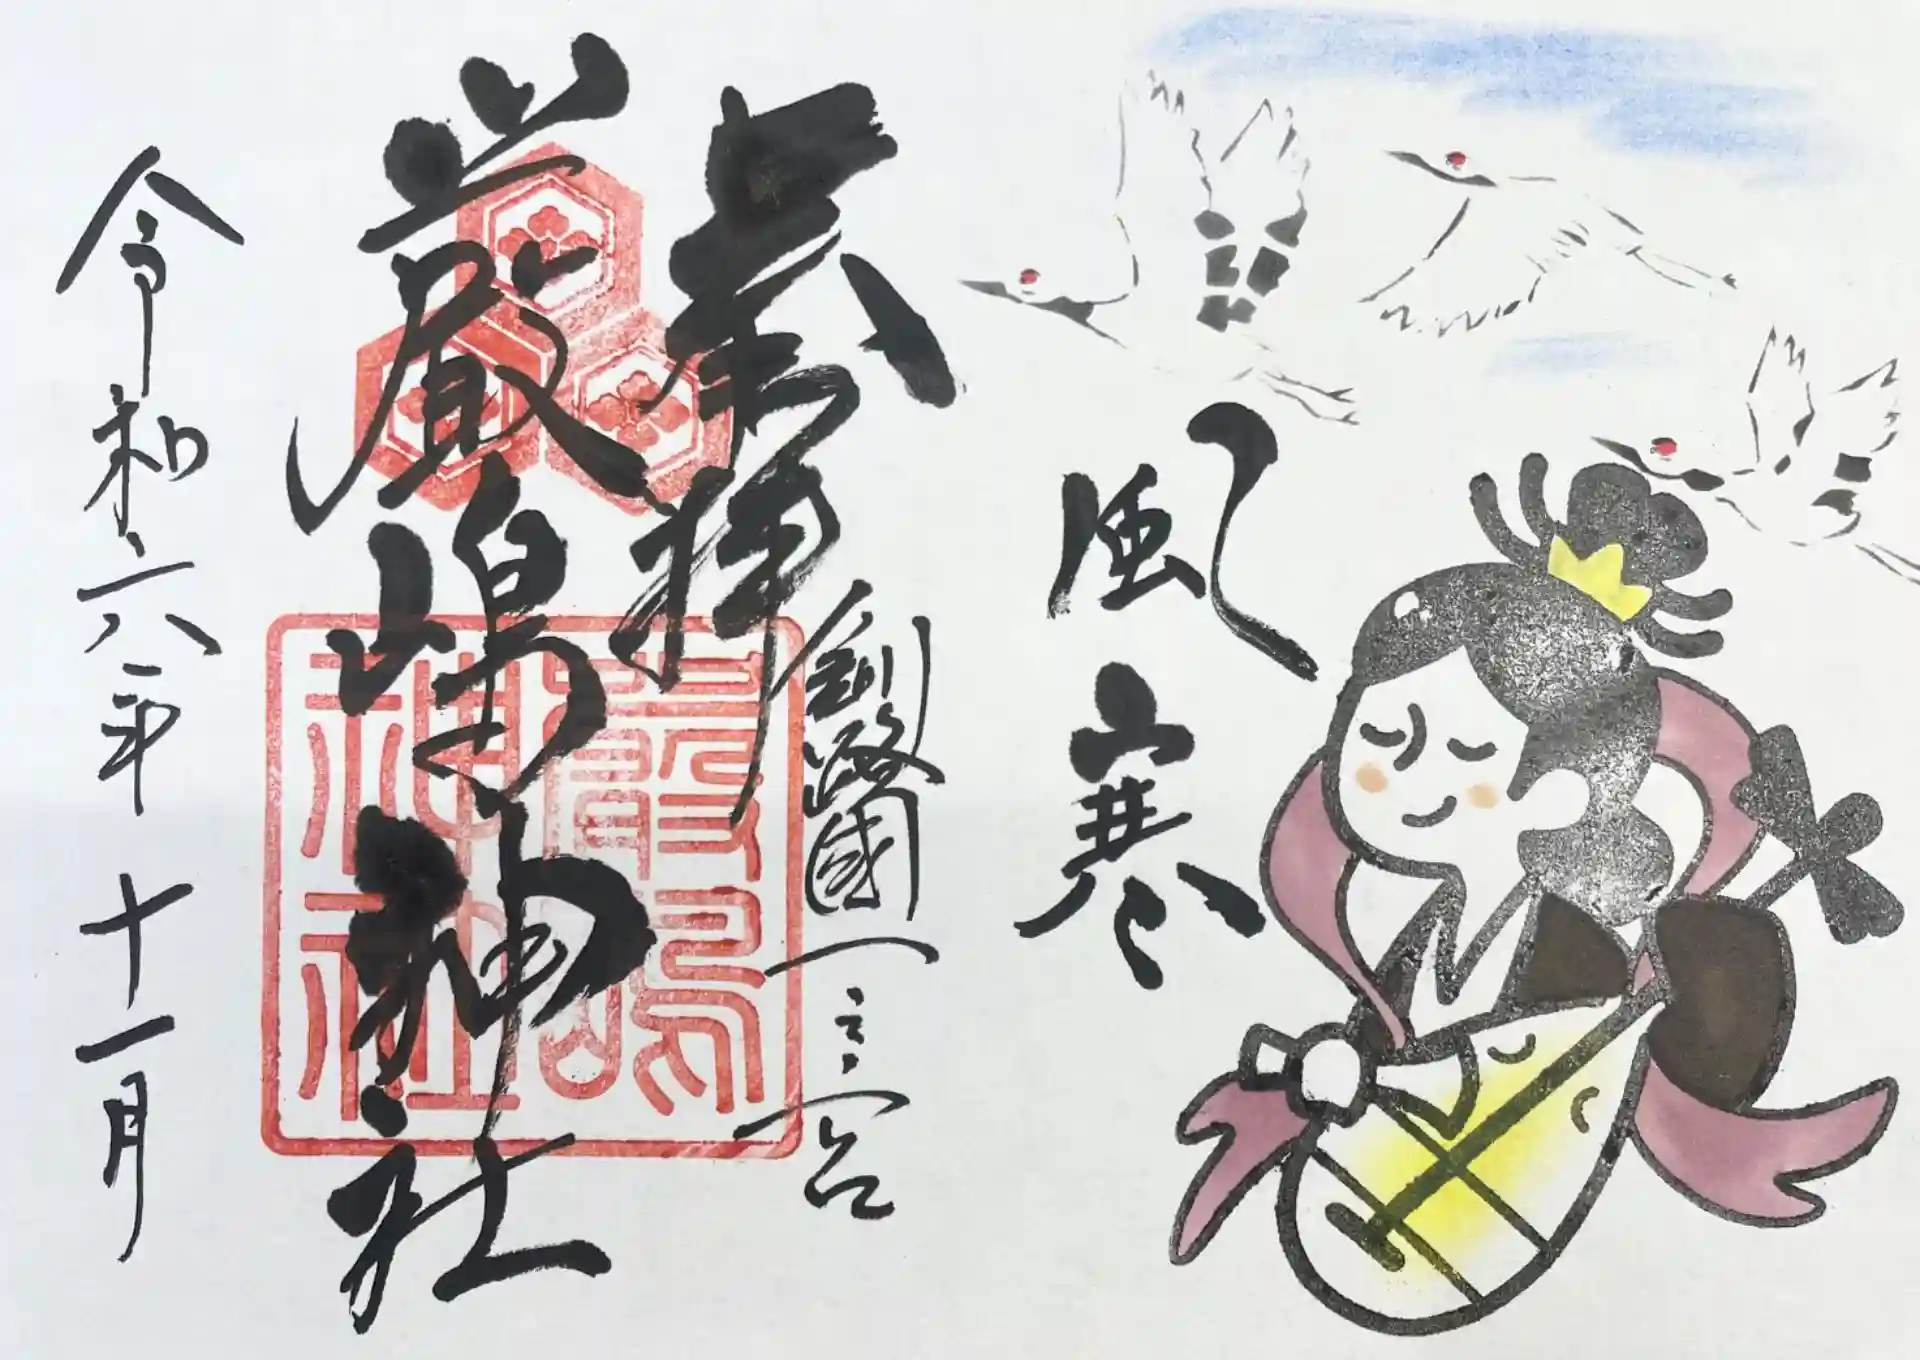 風寒
奉拝
釧路國一之宮
厳嶋神社
嚴島神社
令和六年十一月